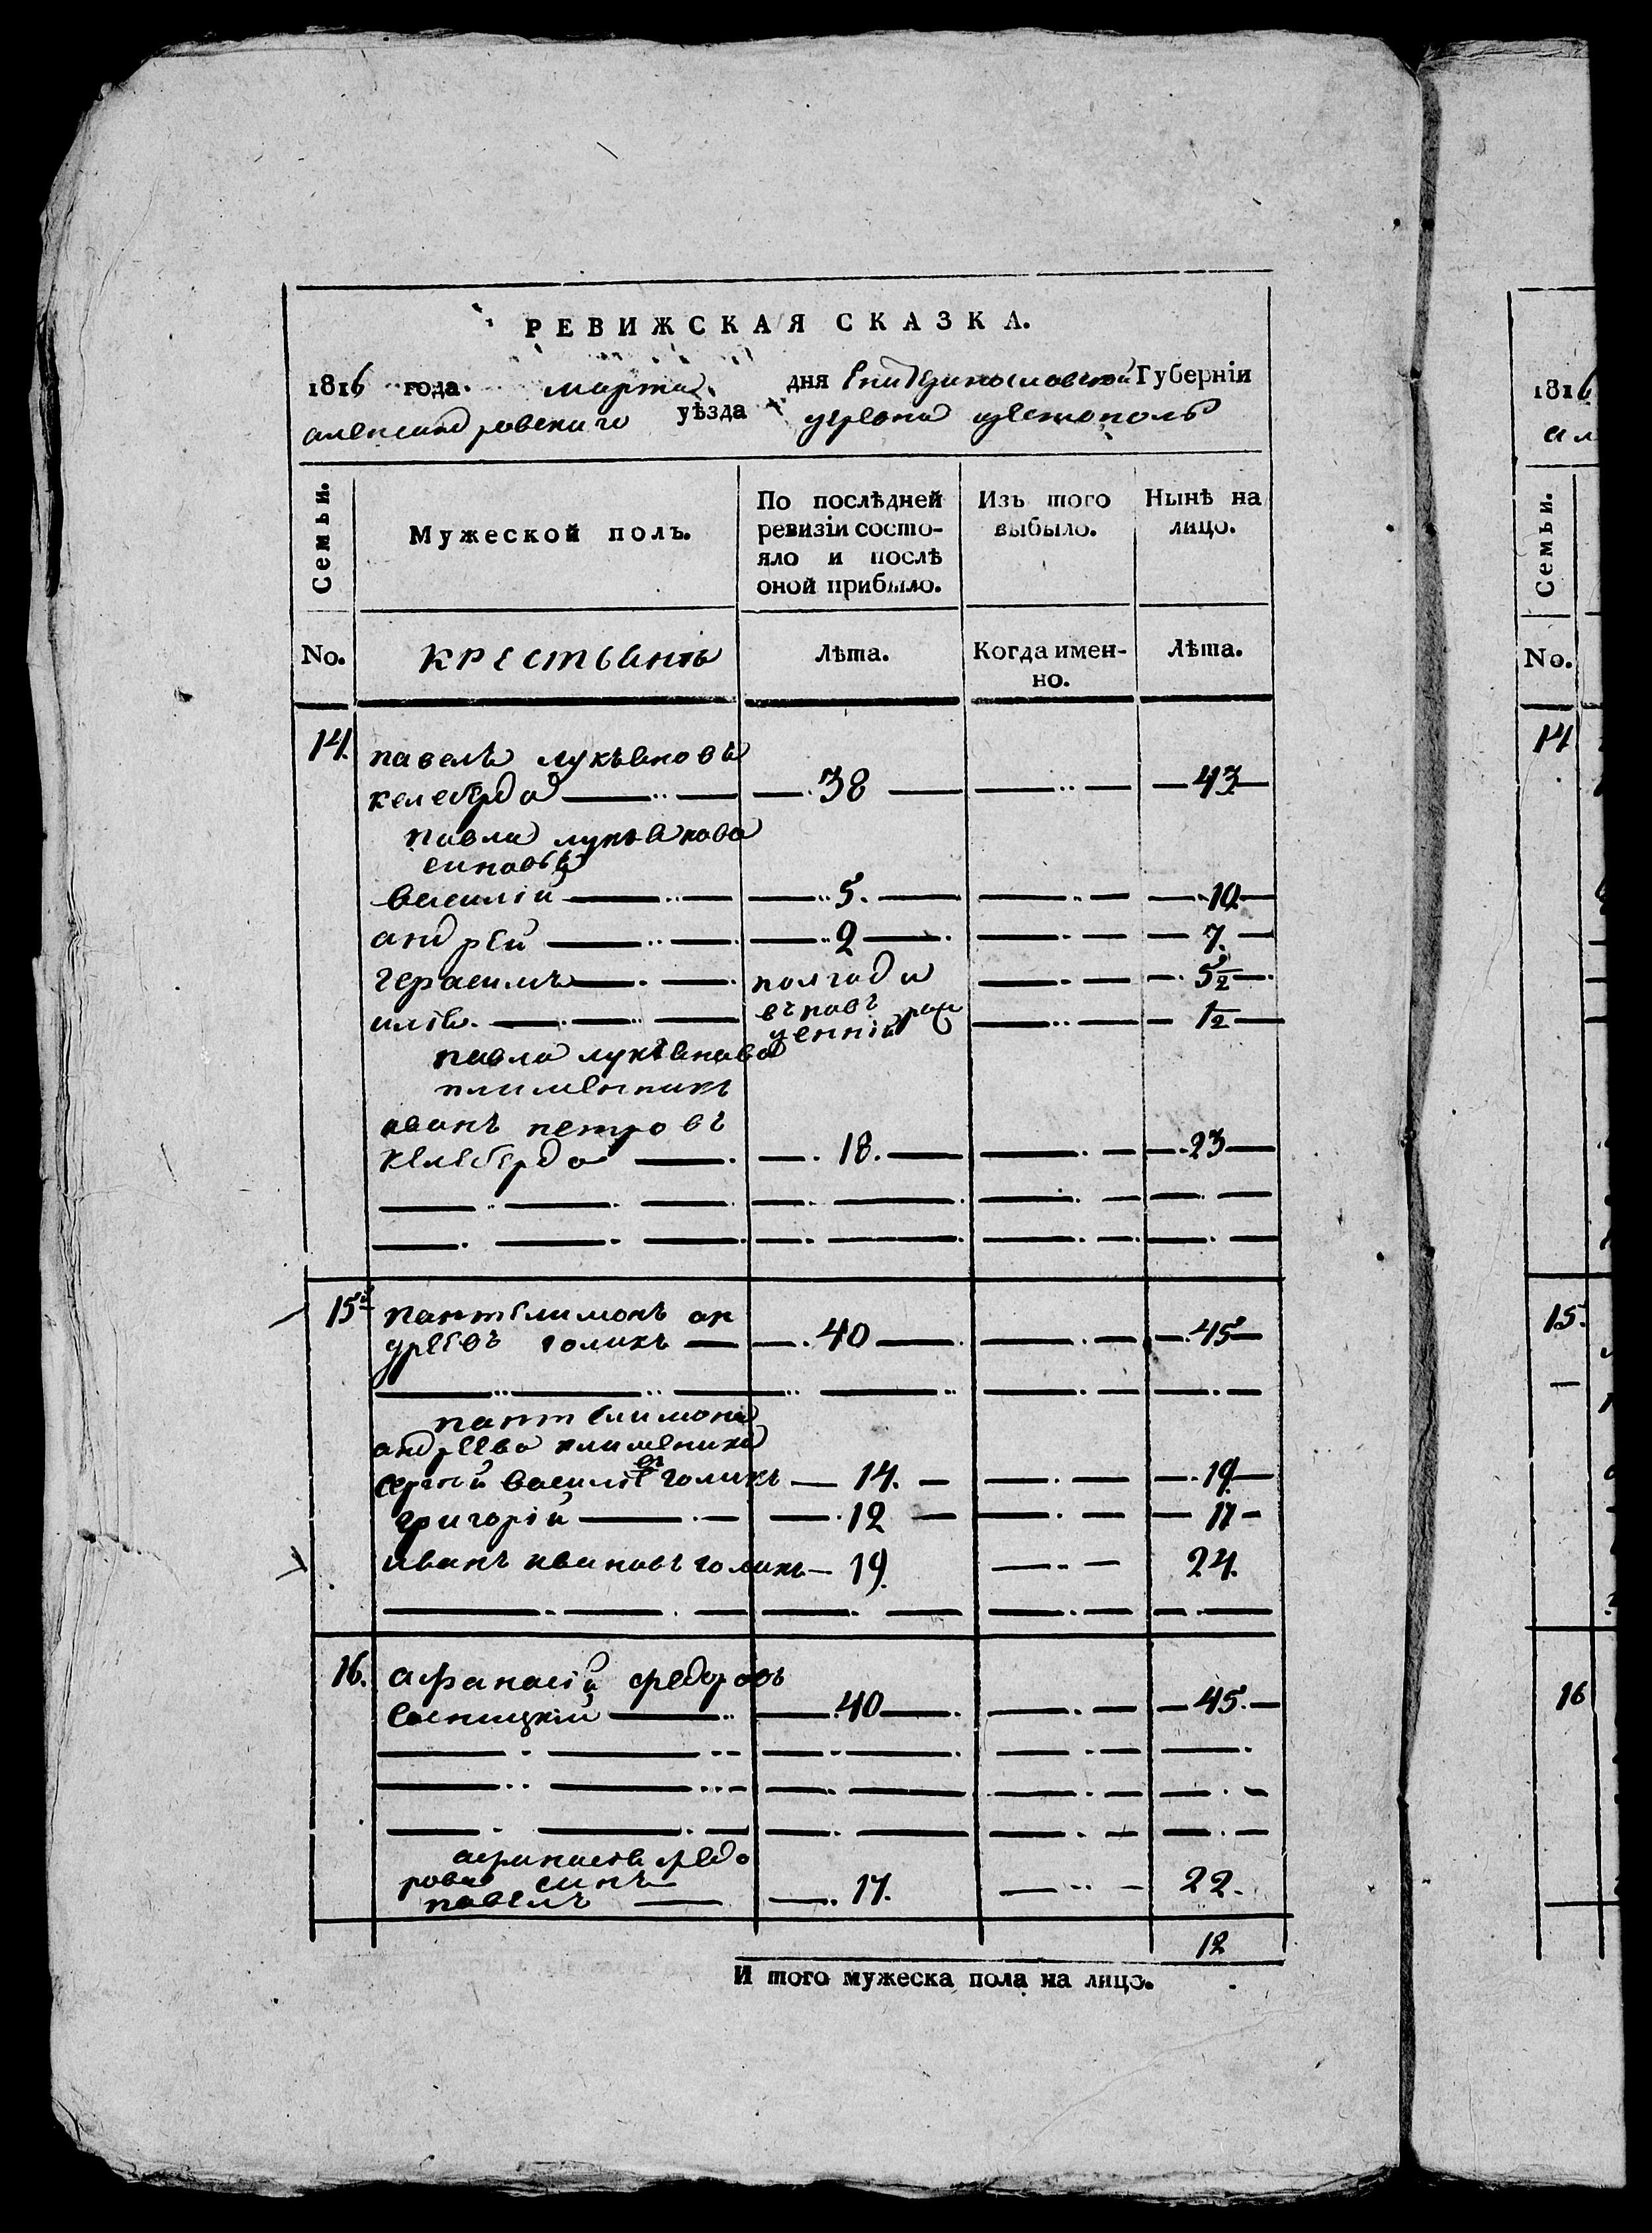 РЕВИЖСКАЯ СКАЗКА.
1816 года. марта дня Екатеринославской Губерніи
александровскаго уѣзда деревни
Семьи. Мужеской полъ. По послѣдней ревизіи состо- Изъ того Нынѣ на
яло и послѣ оной прибыло. выбыло. лицо.
No. крестьянъ Лѣта. Когда имен- Лѣта.
но.
14. павелъ лукъяновъ
келеберда 38 43
павла лукъянова
синовья
василій 5. 10
андрей 2 7.
герасимъ полгода 5½
илія. вновь рож ½
денній
павла лукіянова
племенникъ
иванъ петровъ
келеберда 18. 23
15й пантелимонъ ан
дреевъ голикъ 40 45
пантелимона
андреева племеники
сергей василіевъ голикъ 14. 19
григорій 12 17
иванъ ивановъ голикъ 19. 24.
16. афанасій федоровъ
40 45.
афанасія федо
рова синъ
павелъ 17. 22.
12
И того мужеска пола на лицо.
1816
ал
Семьи.
No.
14
15.
16